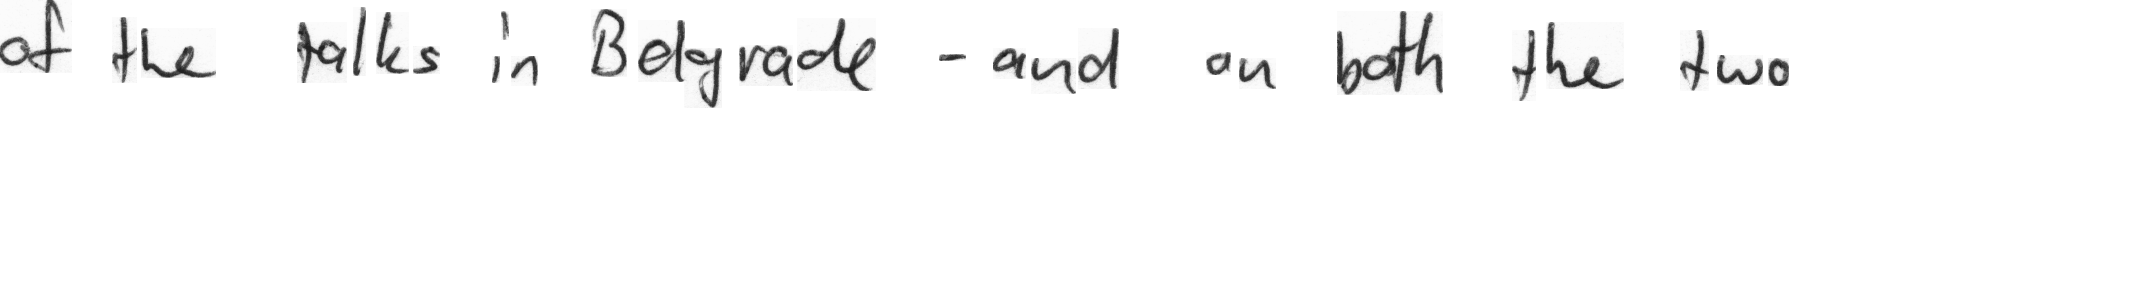 of the talks in Belgrade - and on both the two